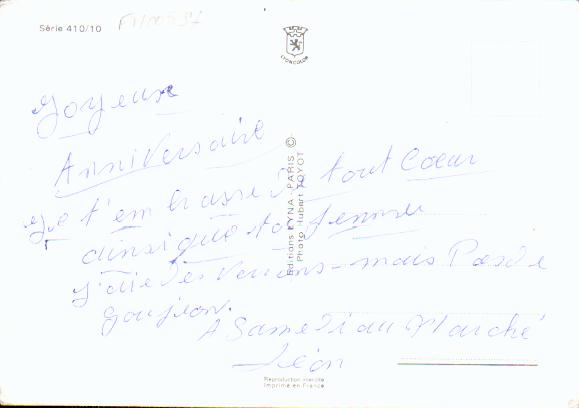 Série 410/10
LYONCOLOR
Joyeux
Anniversaire
Je t'embrasse de tout Coeur
ainsi que ta femme
J'ai des Verrons - mais Pas de
goujeon.
A Samedi au Marché
Léon
Editions LYNA-PARIS ©
Photo Hubert TOYOT
Reproduction interdite
Imprimé en France